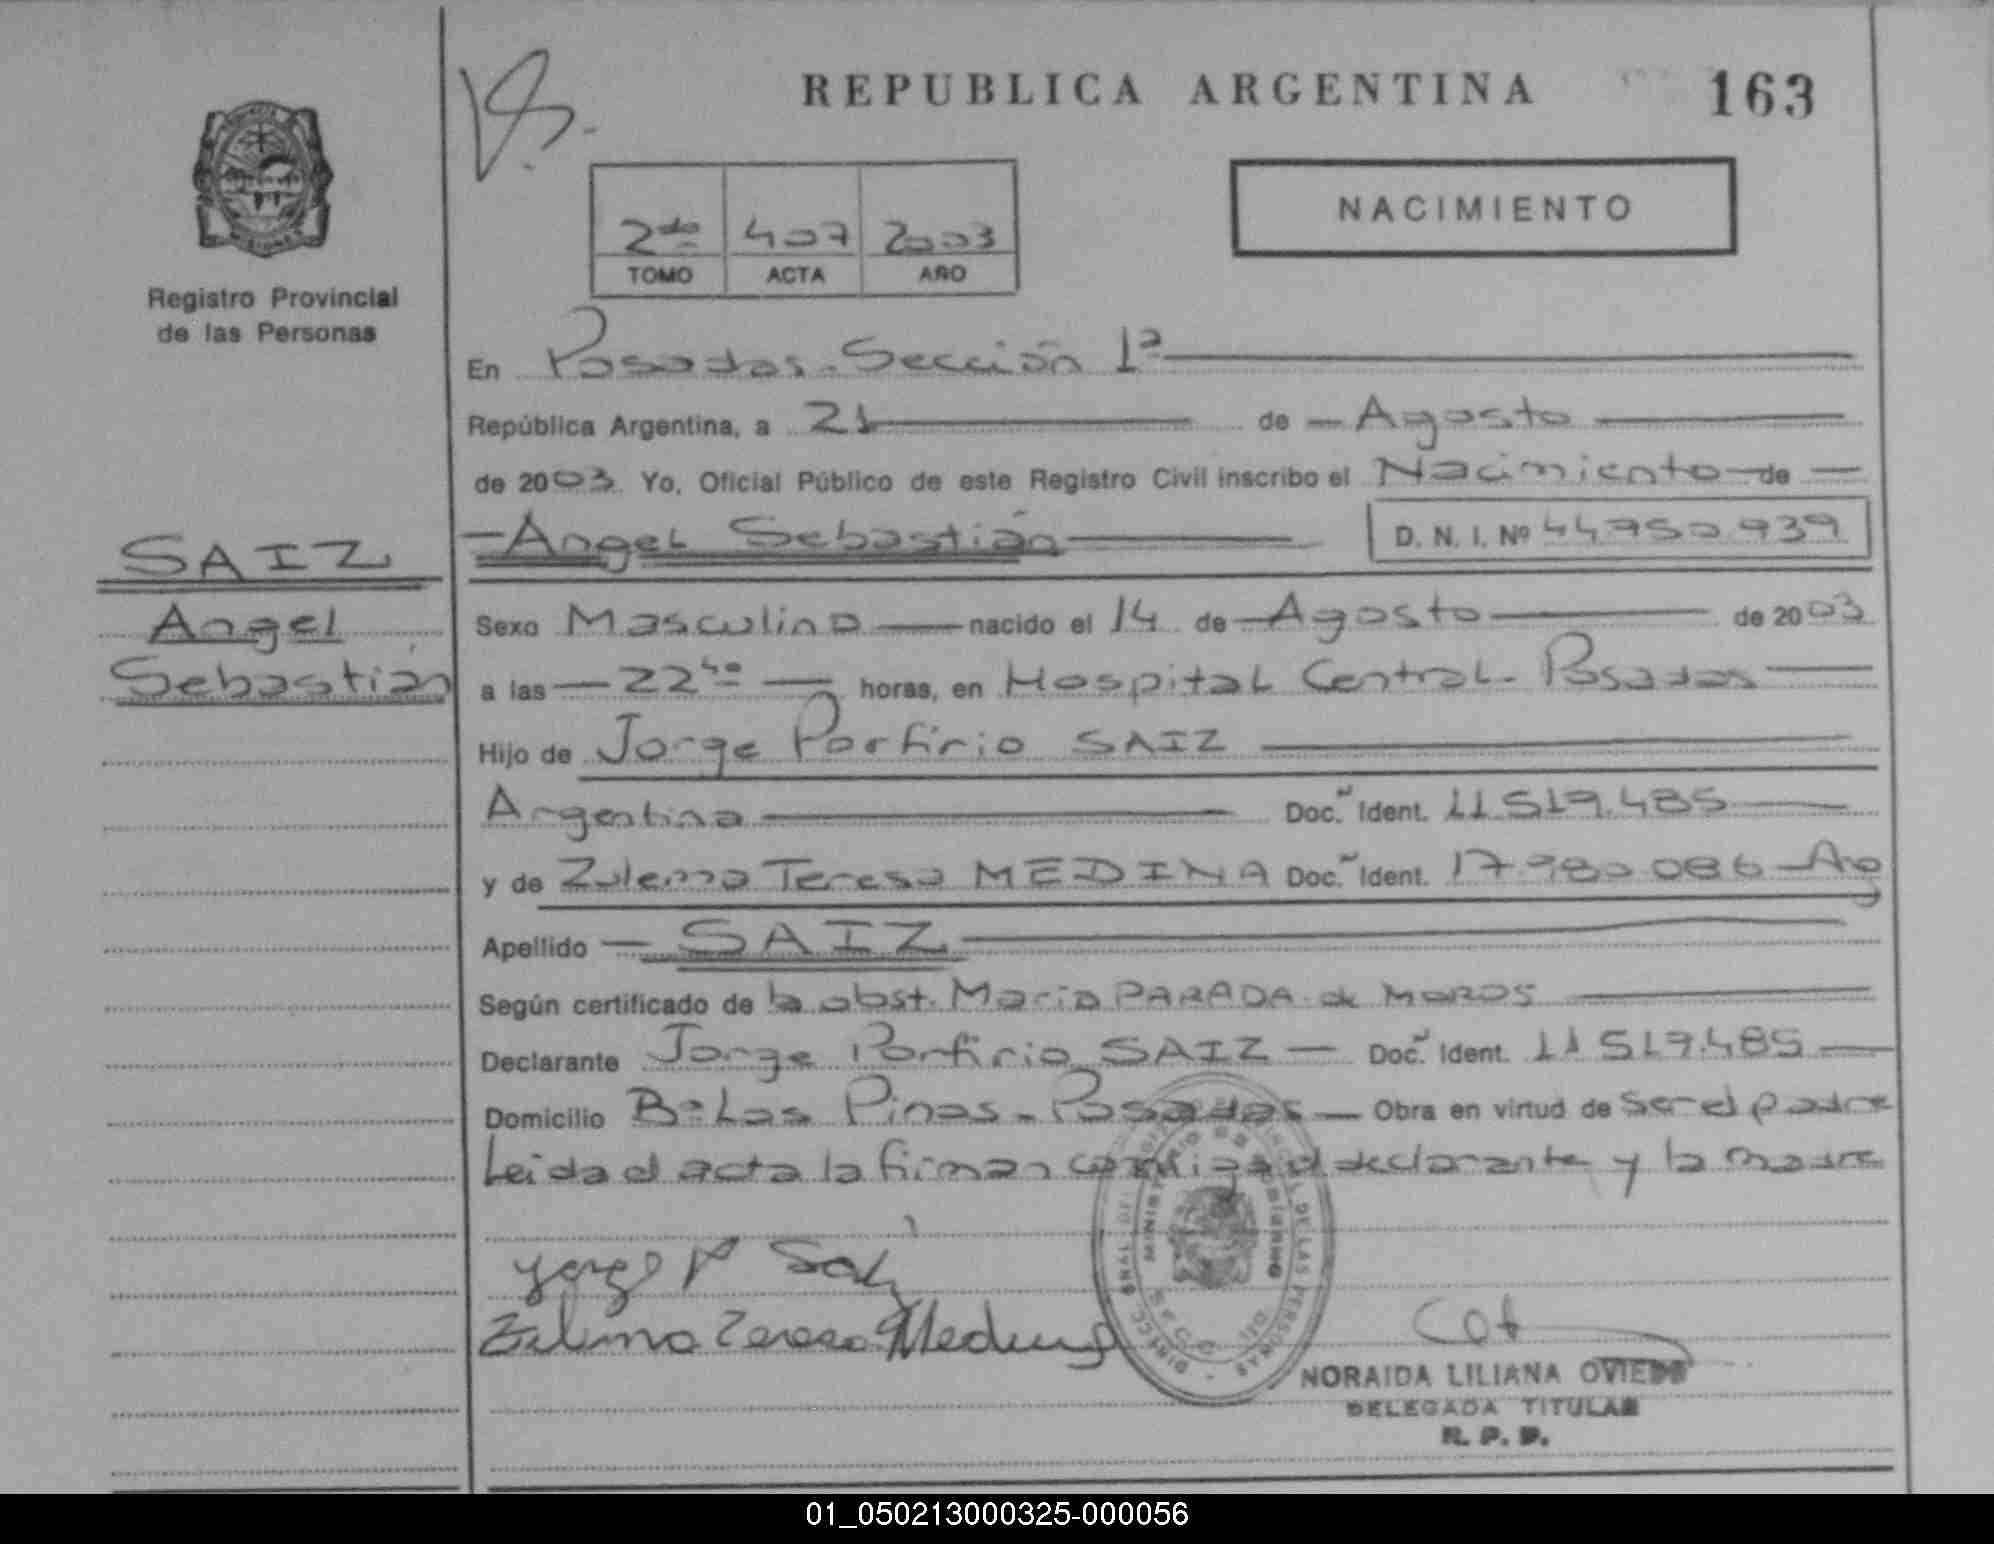 REPUBLICA ARGENTINA 163
NACIMIENTO
2do 407 2003
TOMO ACTA AÑO
Registro Provincial
de las Personas
En Posadas - Sección 1ª
República Argentina, a 21 de Agosto
de 2003 Yo, Oficial Público de este Registro Civil inscribo el Nacimiento de
Angel Sebastián D. N. I. Nº 44.750.939
SAIZ
Angel
Sebastián
Sexo Masculino nacido el 14 de Agosto de 2003
a las 22 40 horas, en Hospital Central - Posadas
Hijo de Jorge Porfirio SAIZ
Argentina Doc. Ident. 11.519.485
y de Zulema Teresa MEDINA Doc. Ident. 17.980.086 - Arg
Apellido SAIZ
Según certificado de la obst. Maria PARADA de MOROS
Declarante Jorge Porfirio SAIZ Doc. Ident. 11.519.485
Domicilio Bº Los Pinos - Posadas Obra en virtud de ser el padre
Leida el acta la firman conmigo el declarante y la madre
Jorge P Saiz
Zulema Teresa Medina
MINISTERIO DE GOBIERNO
DE LAS PERSONAS
NORAIDA LILIANA OVIEDO
DELEGADA TITULAR
R. P. P.
01_050213000325-000056